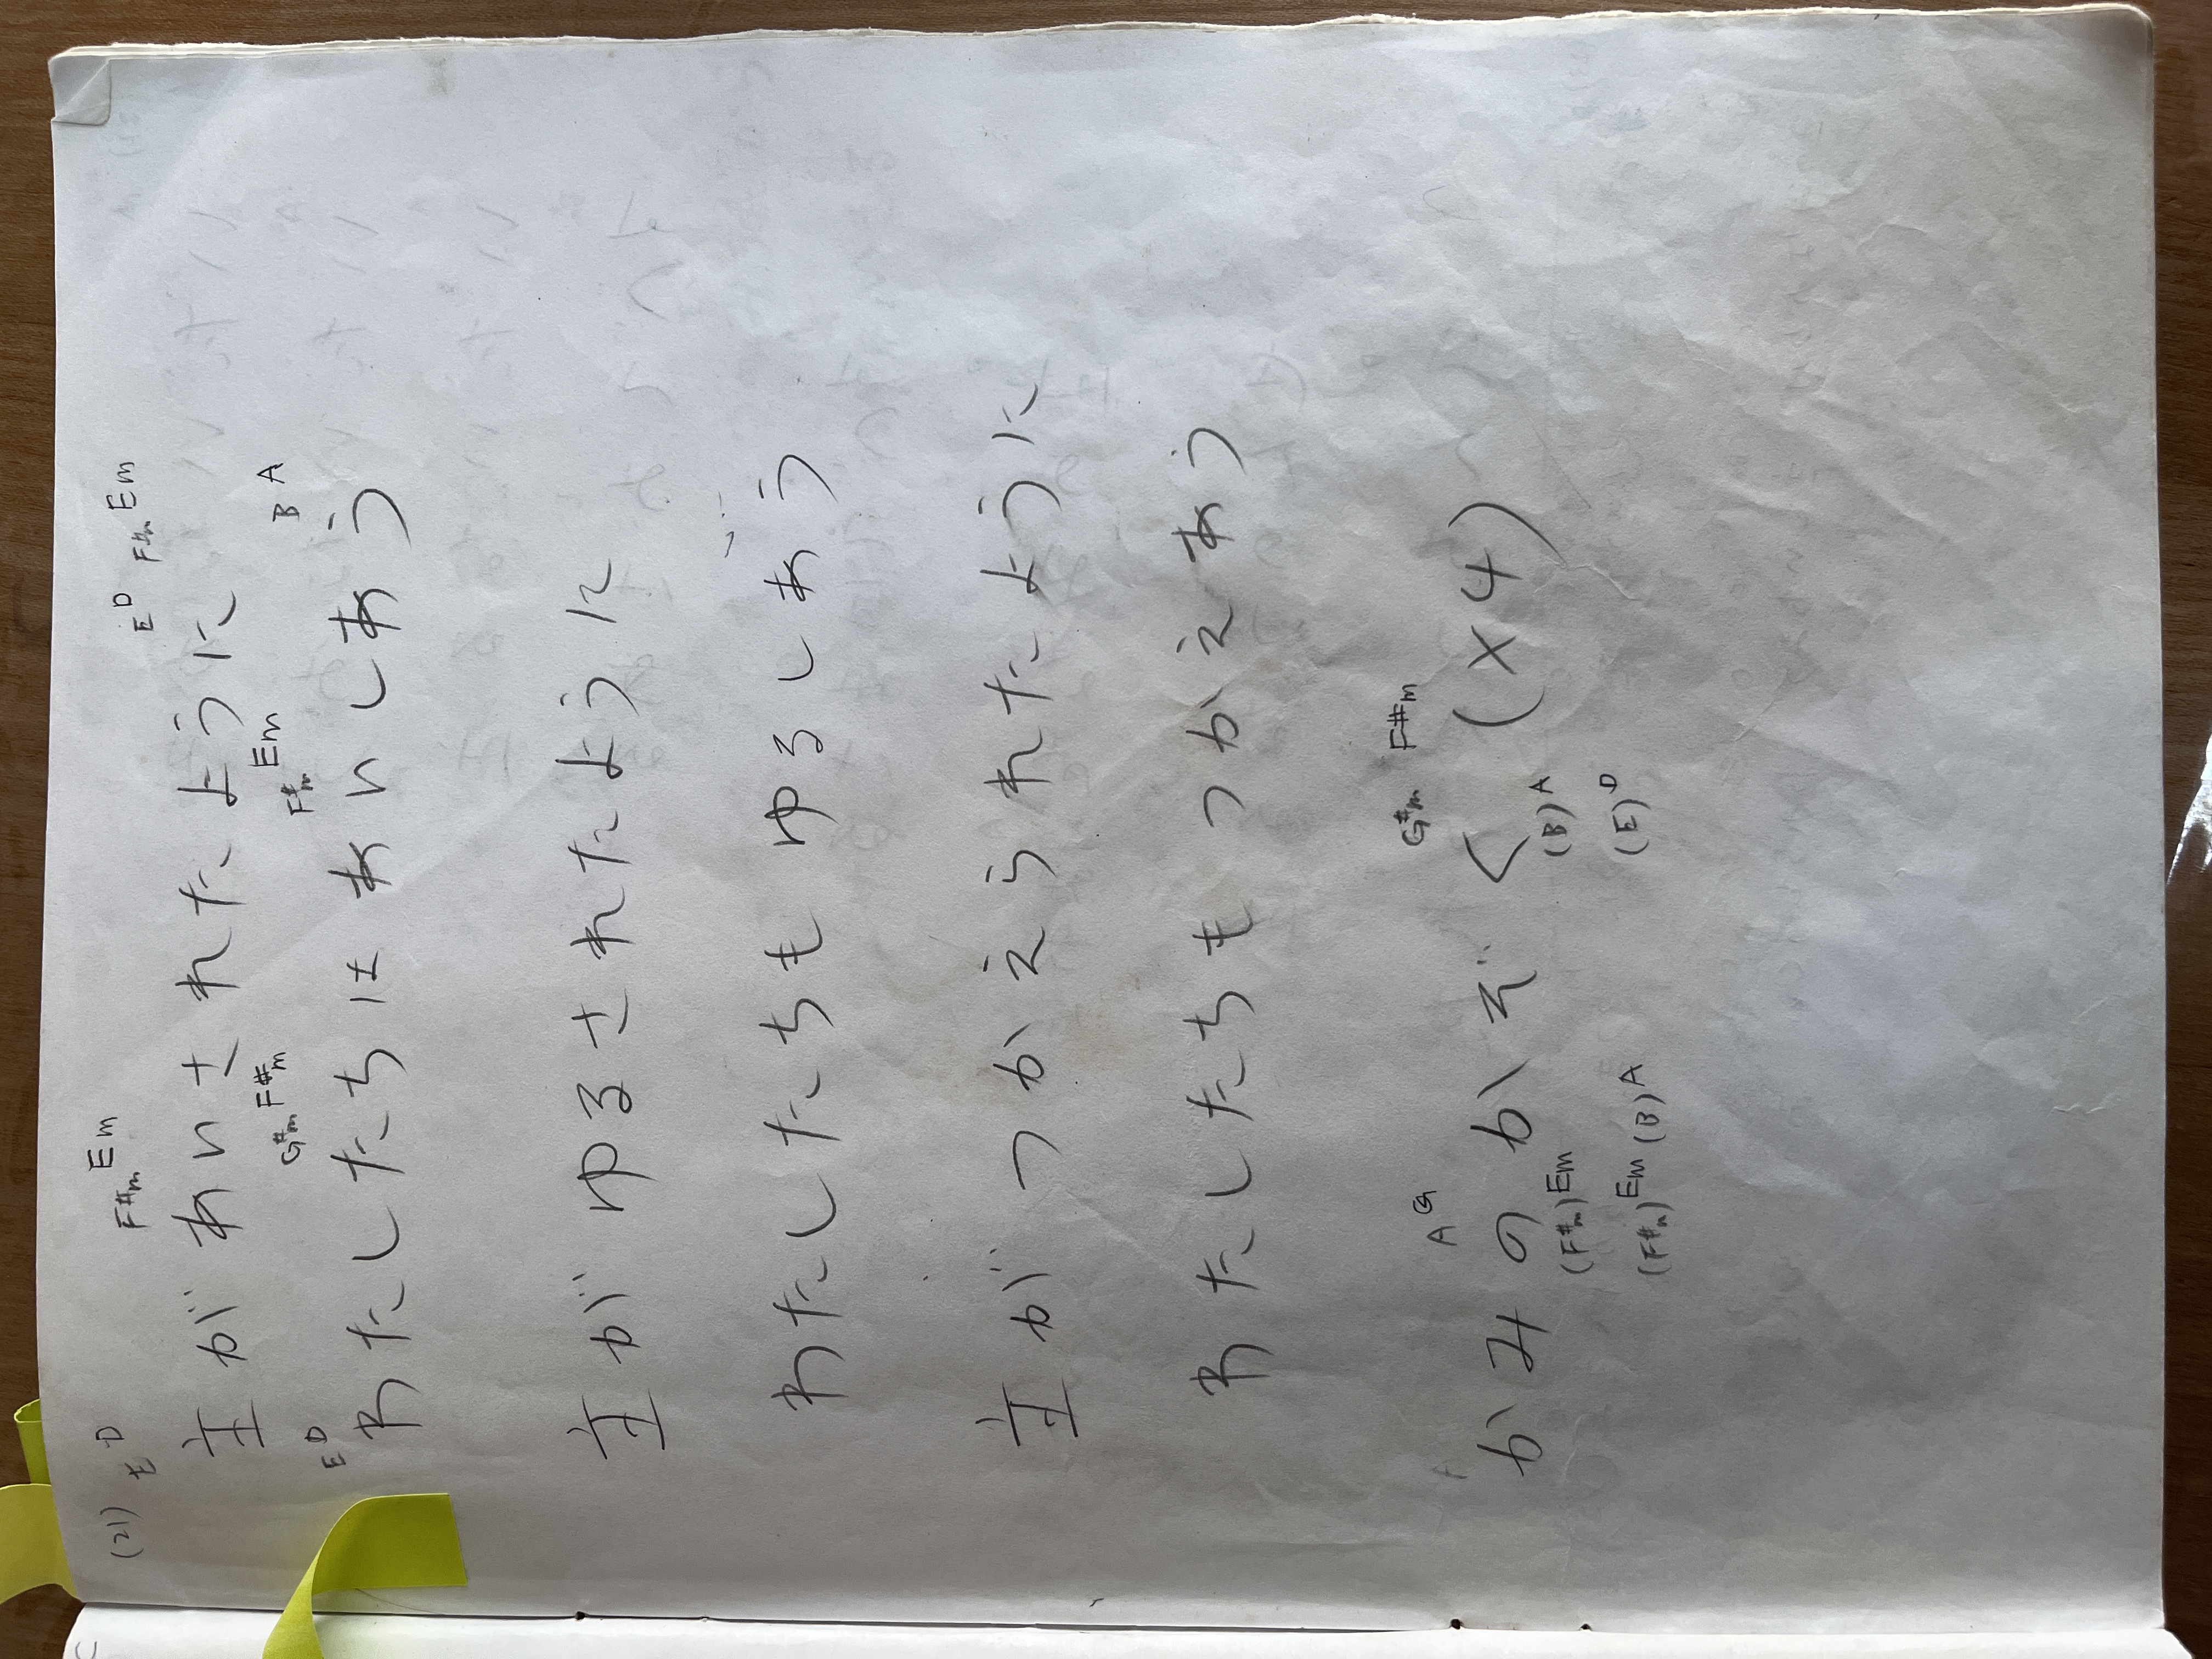 (21) E D F#m Em E D F#m Em
主が あいされたように
E D G#m F#m F#m Em B A
わたしたちは あいしあう
主が ゆるされたように
わたしたちも ゆるしあう
主が つかえられたように
わたしたちも つかえあう
A G G#m F#m
かみの かぞく (×4)
(F#m) Em (B) A
(F#m) Em (B) A (E) D